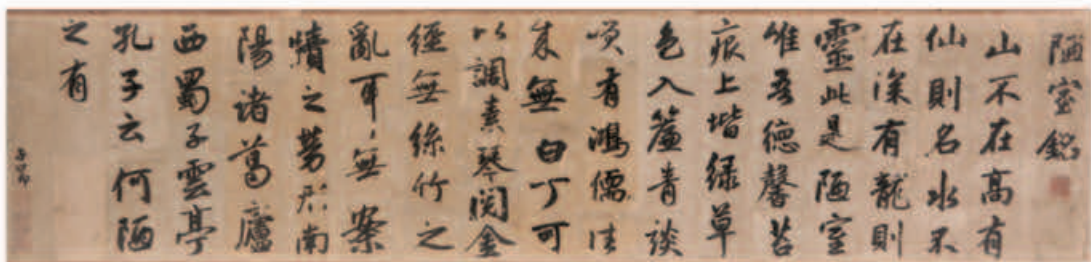 陋室銘
山不在高有
仙則名水不
在深有龍則
靈此是陋室
唯吾德馨苔
痕上堦緑草
色入簾青談
笑有鴻儒往
來無白丁可
以調素琴閱金
經無絲竹之
亂耳、無案
牘之勞形南
陽諸葛廬
西蜀子雲亭
孔子云何陋
之有
子昂